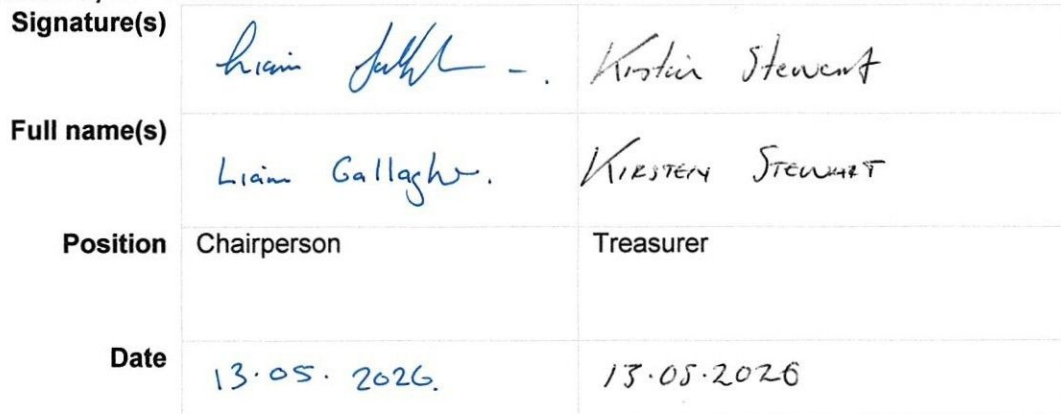 Signature(s)
Liam - . Kirstein Stewart
Full name(s)
Liam Gallagher. KIRSTEIN STEWART
Position Chairperson Treasurer
Date 13.05.2026. 13.05.2026